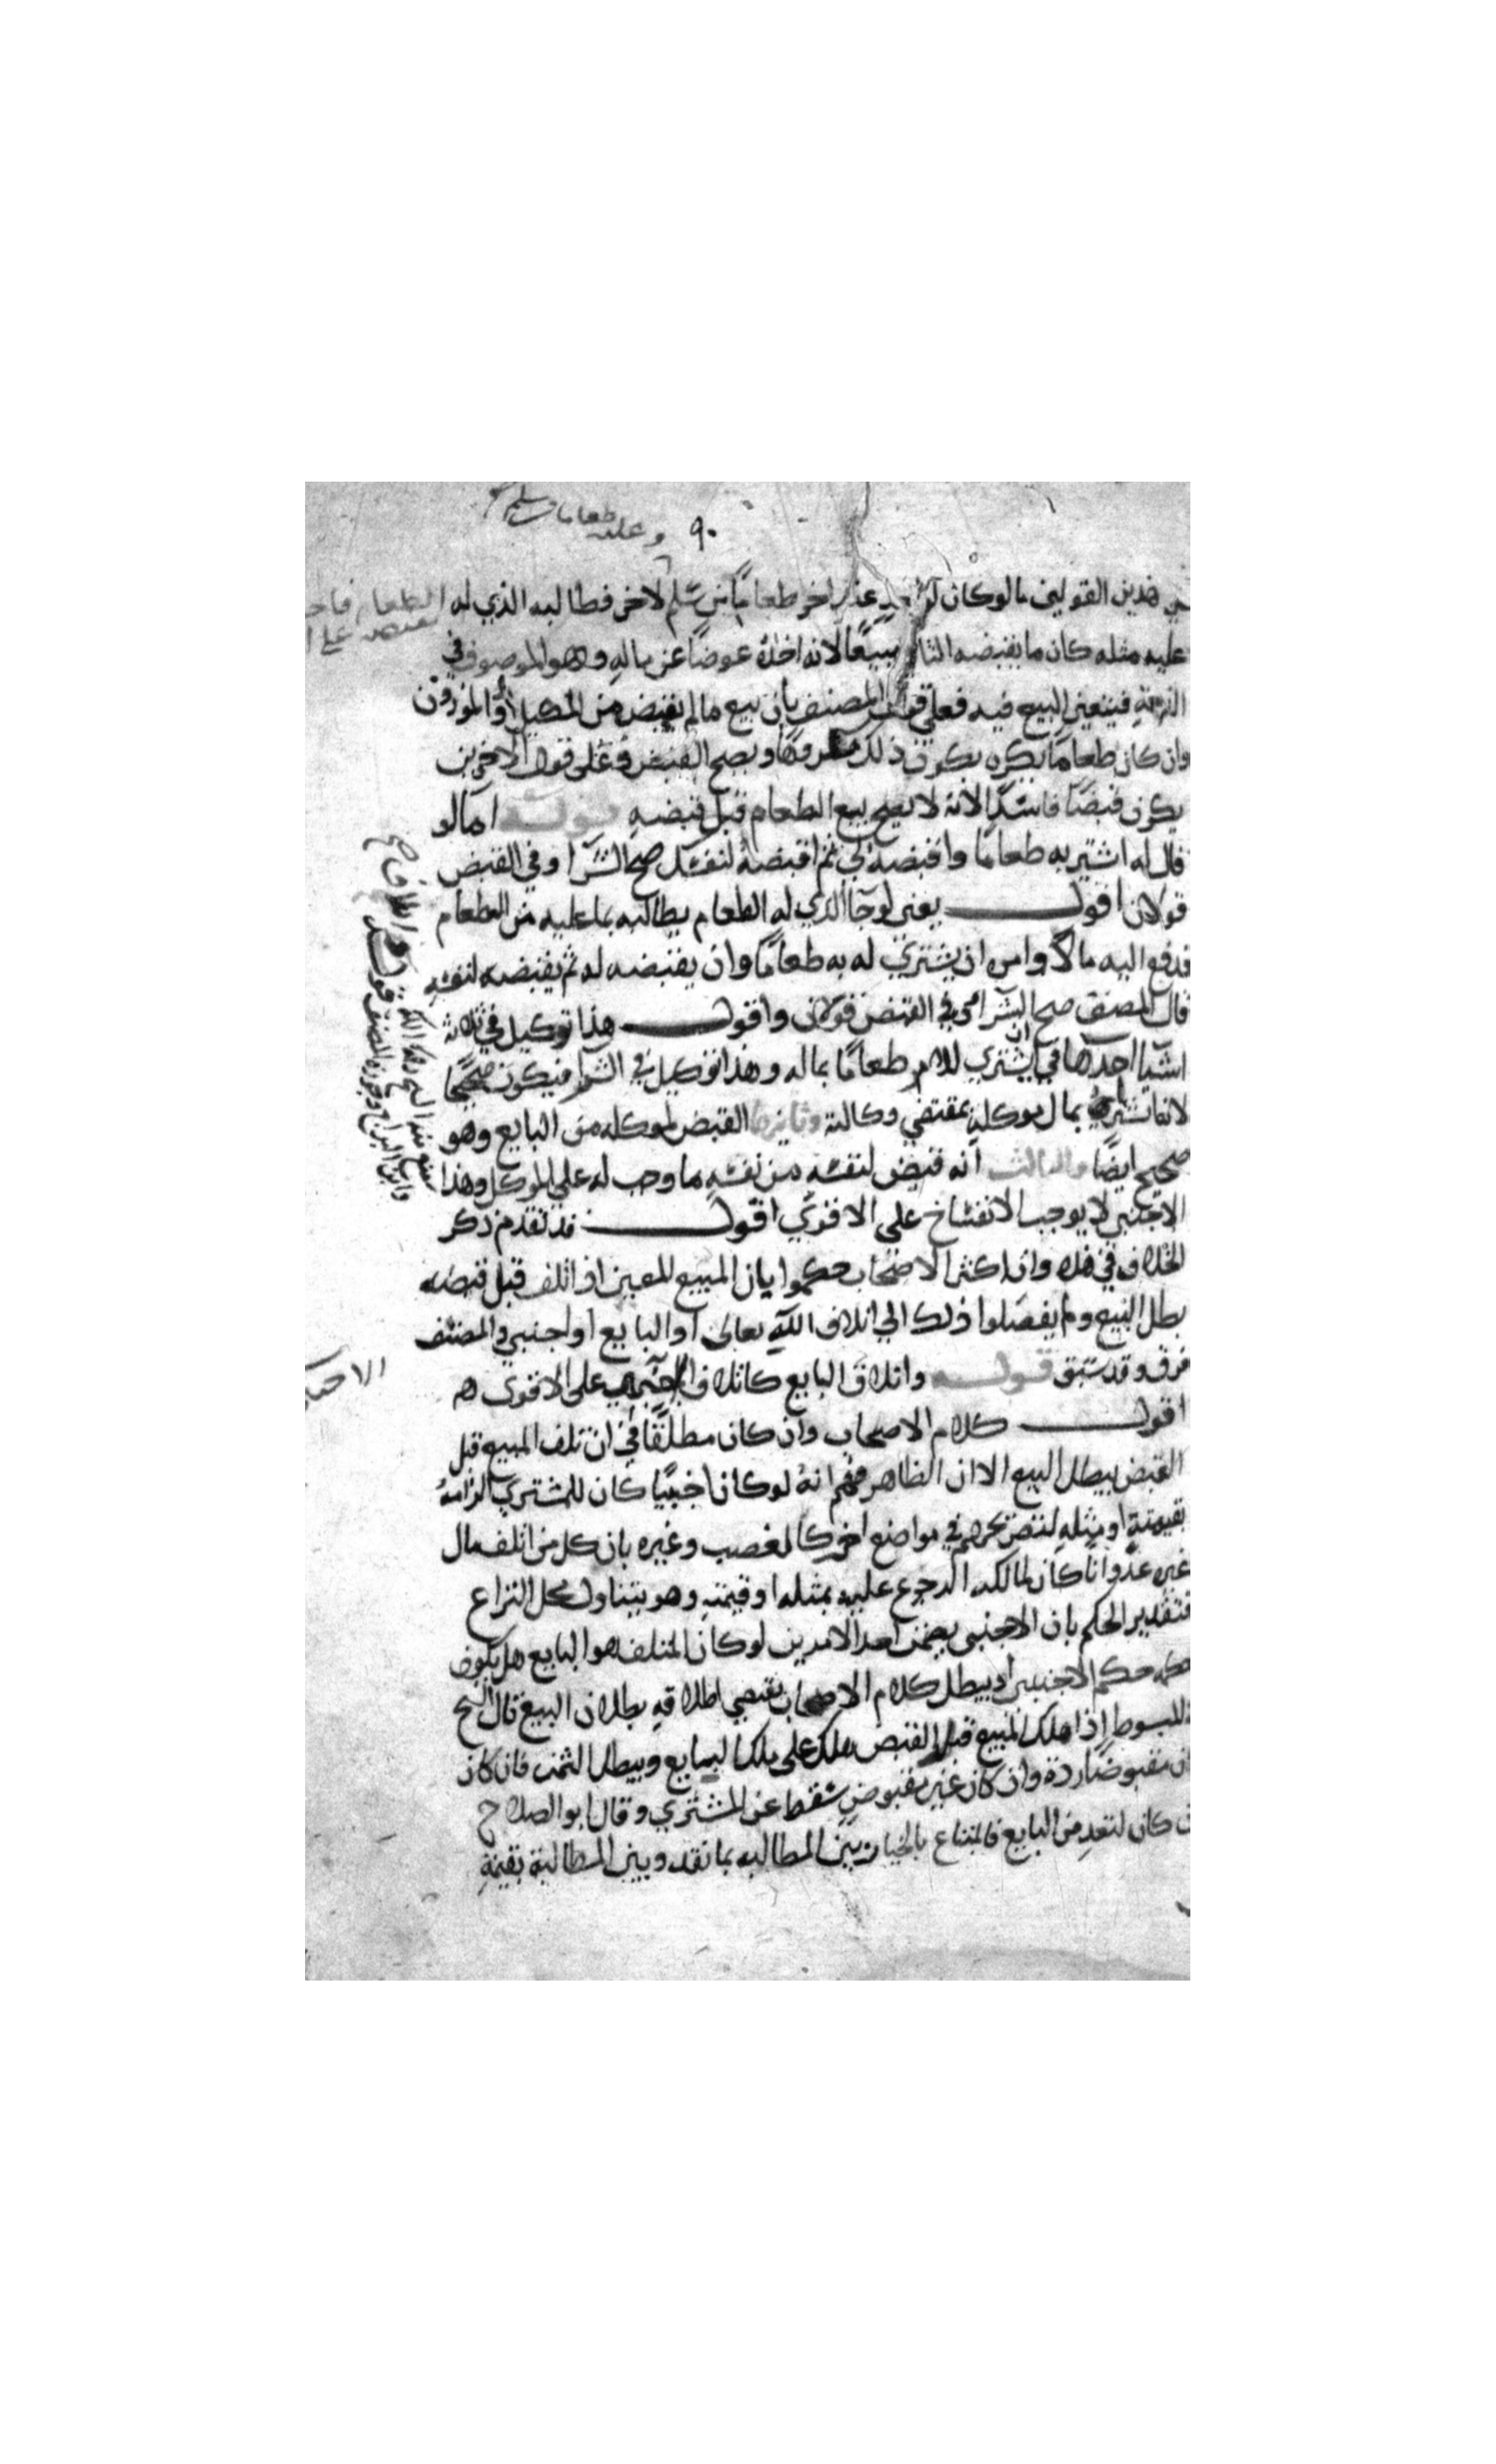 ٩٠ وعليه طعاما من سلم
هذين القولين ما لوكان لواحد عند اخر طعامًا من سَلم لاخر فطالبه الذي له الطعام
عليه مثله كان ما يقبضه الثاني مبيعًا لانه اخذه عوضًا عن ماله وهو الموصوف في
الذمة فيتعين البيع فيه فعلى قول المصنف بان بيع ما لم يقبض من المكيل او الموزون
وان كان طعامًا يكره يكون ذلك مكروهًا ويصح القبض وعلى قول الاخرين
يكون قبضًا فاسدًا لانه لا يصح بيع الطعام قبل قبضه قوله اما لو
قال له اشتر به طعامًا واقبضه لي ثم اقبضه لنفسك صح الشرا وفي القبض
قولان اقول يعني لو جا الذي له الطعام يطالبه بما عليه من الطعام
فدفع اليه مالًا وامره ان يشتري له به طعامًا وان يقبضه له ثم يقبضه لنفسه
قال المصنف صح الشرا وفي القبض قولان واقول هذا توكيل في ثلاثة
اشيا احدها في ان يشتري للامر طعامًا بماله وهذا توكيل في الشرا فيكون صحيحًا
لانه اشترى بمال موكله بمقتضى وكالته وثانيها القبض لموكله من البايع وهو
صحيح ايضًا والثالث انه قبض لنفسه من نفسه ما وجب له على الموكل وهذا
الاجنبي لا يوجب الانفساخ على الاقوى اقول قد تقدم ذكر
الخلاف في هذه وان اكثر الاصحاب حكموا بان المبيع المعين اذا تلف قبل قبضه
بطل البيع ولم يفصلوا ذلك الى اتلاف الله تعالى او البايع او اجنبي والمصنف
فرق وقد سبق قوله واتلاف البايع كاتلاف الاجنبي على الاقوى هم
اقول كلام الاصحاب وان كان مطلقًا في ان تلف المبيع قبل
القبض يبطل البيع الا ان الظاهر منهم انه لو كان اجنبيًا كان للمشتري الزامه
بقيمته او مثله لتصريحهم في مواضع اخر كالغصب وغيره بان كل من اتلف مال
غيره عدوانا كان لمالكه الرجوع عليه بمثله او قيمته وهو يتناول محل النزاع
فتقدير الحكم بان الاجنبي يضمن احد الامرين لو كان المتلف هو البايع هل يكون
حكمه حكم الاجنبي او يبطل كلام الاصحاب يقتضي اطلاقه بطلان البيع قال الشيخ
المبسوط إذا هلك المبيع قبل القبض هلك على ملك البايع ويبطل الثمن فان كان
مقبوضًا رده وان كان غير مقبوض سقط عن المشتري وقال ابو الصلاح
كان لتعد من البايع فالمبتاع بالخيار بين المطالبه بما نقد وبين المطالبة بقيمة